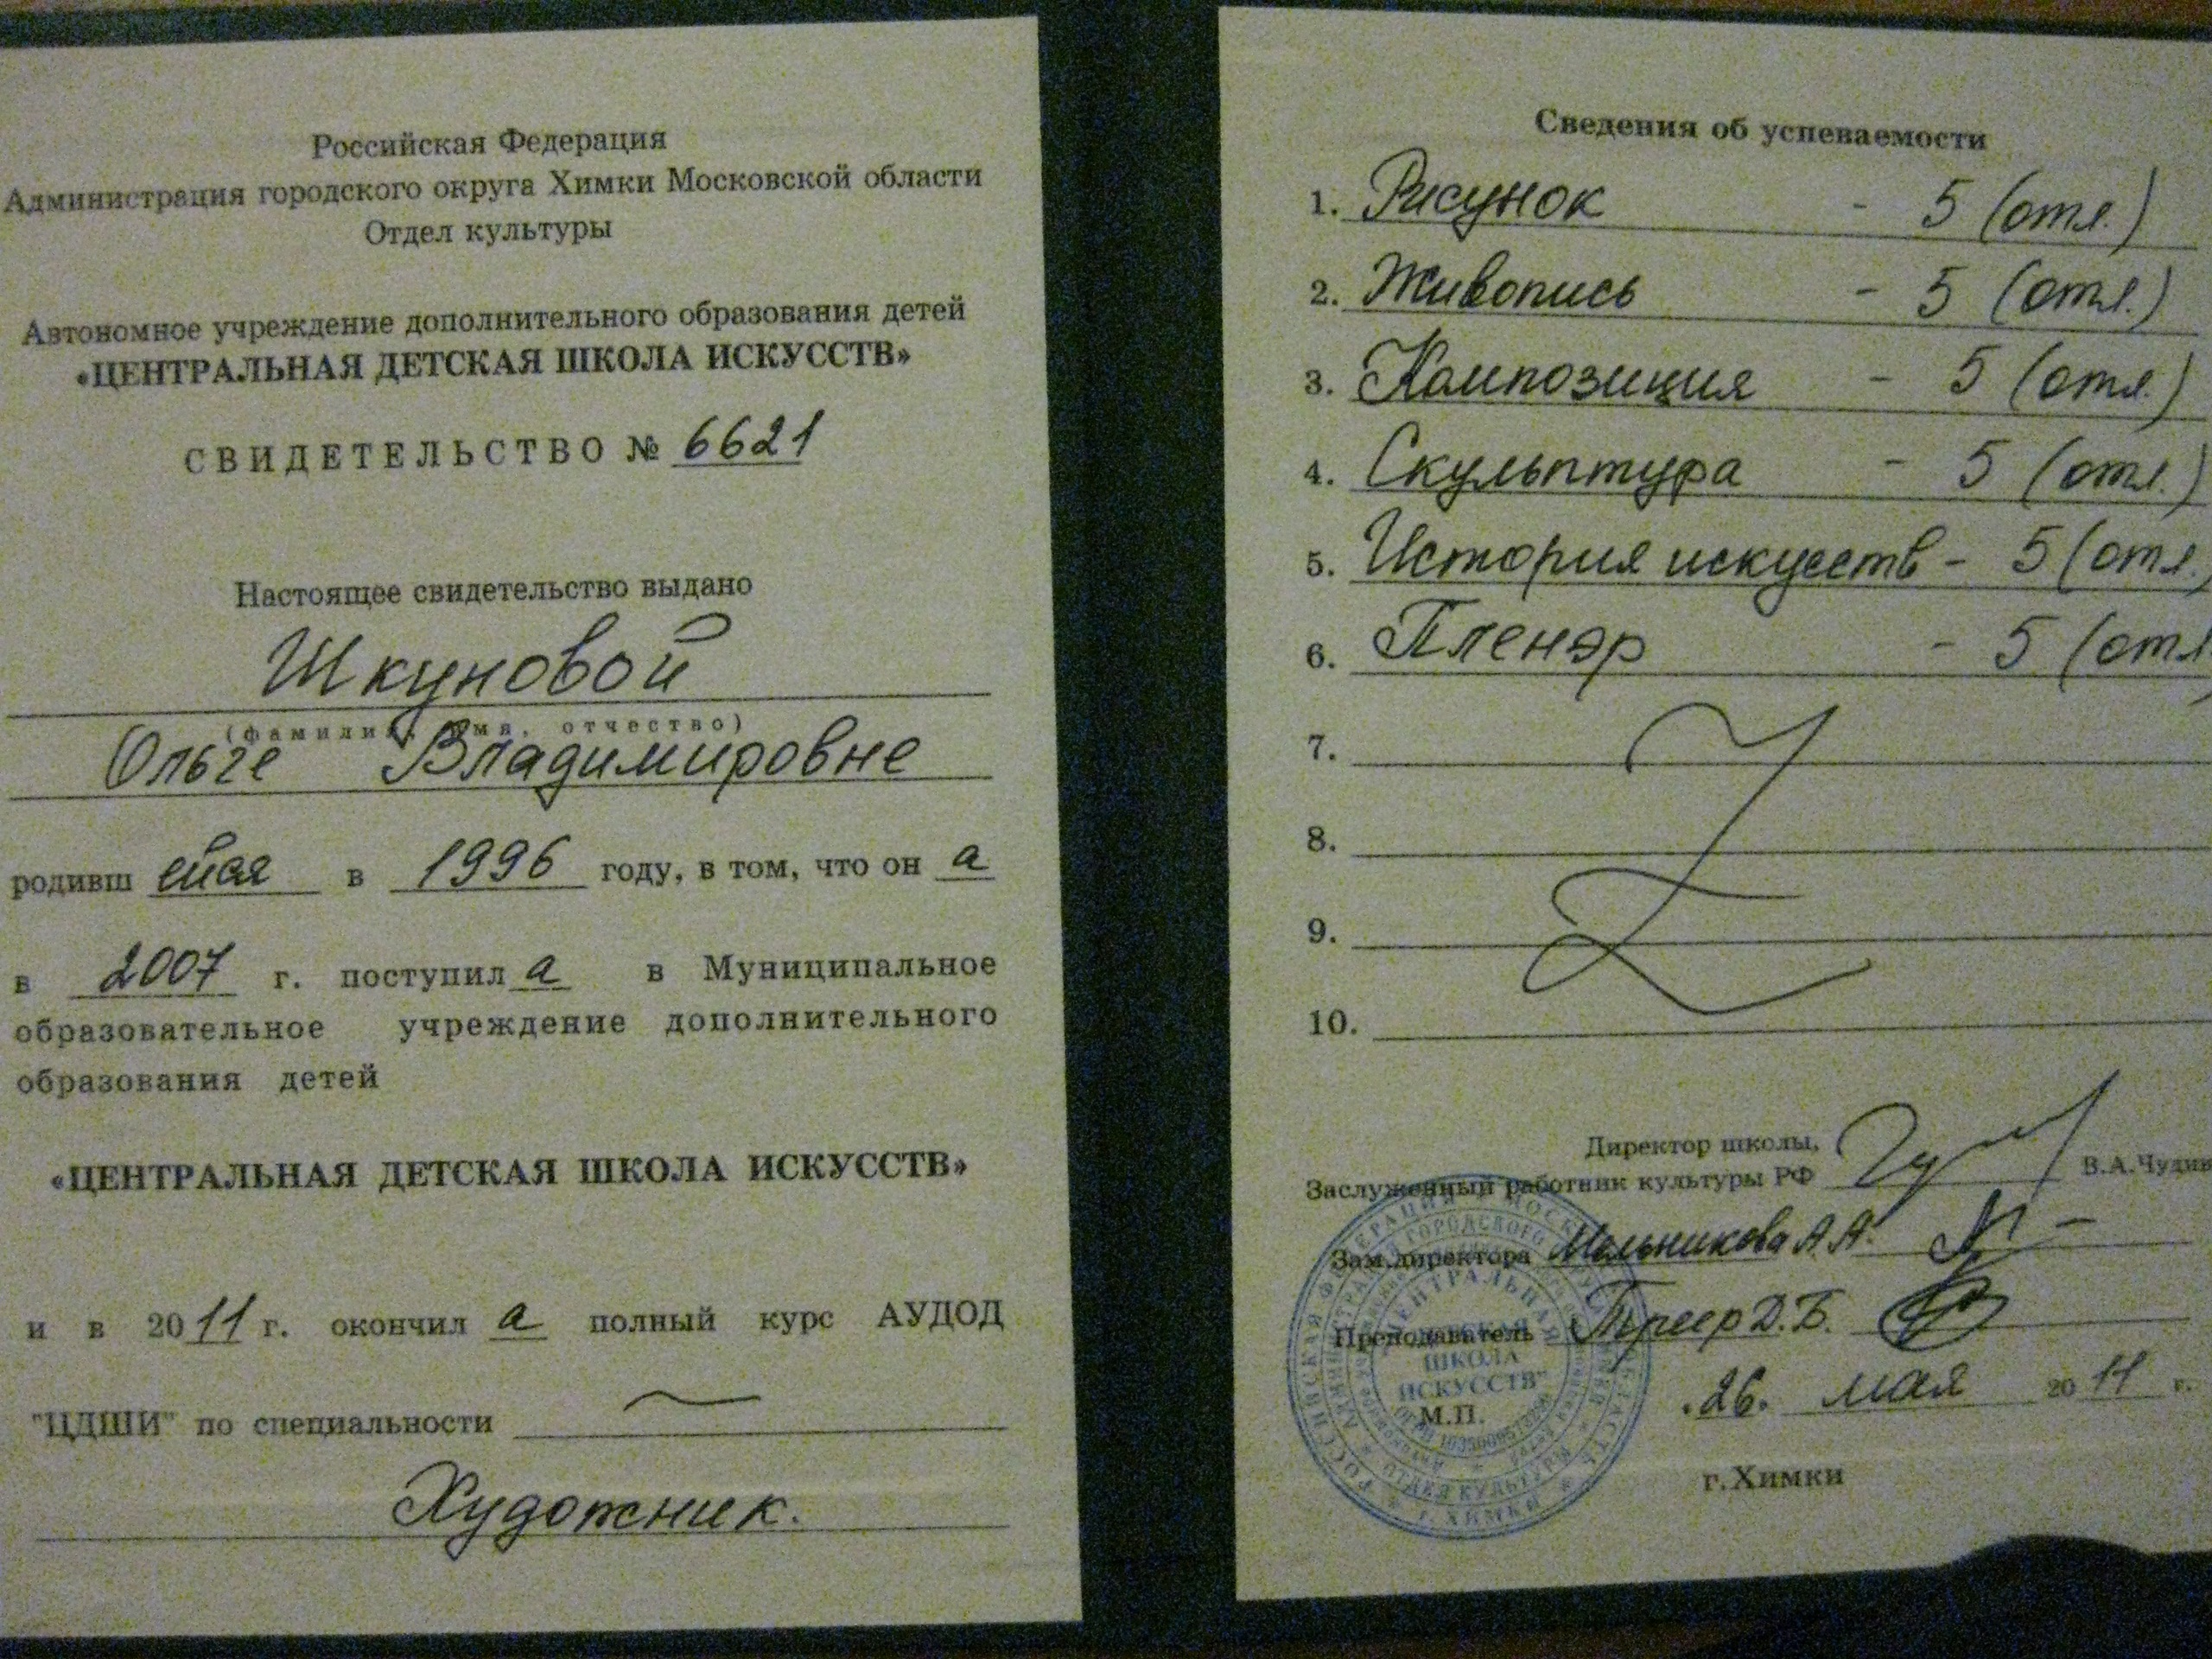 Российская Федерация
Администрация городского округа Химки Московской области
Отдел культуры
Автономное учреждение дополнительного образования детей
«ЦЕНТРАЛЬНАЯ ДЕТСКАЯ ШКОЛА ИСКУССТВ»
СВИДЕТЕЛЬСТВО № 6621
Настоящее свидетельство выдано
Шкуновой
(фамилия, имя, отчество)
Ольге Владимировне
родивш ейся в 1996 году, в том, что он а
в 2007 г. поступил а в Муниципальное
образовательное учреждение дополнительного
образования детей
«ЦЕНТРАЛЬНАЯ ДЕТСКАЯ ШКОЛА ИСКУССТВ»
и в 2011 г. окончил а полный курс АУДОД
"ЦДШИ" по специальности
Художник.
Сведения об успеваемости
1. Рисунок - 5 (отл.)
2. Живопись - 5 (отл.)
3. Композиция - 5 (отл.)
4. Скульптура - 5 (отл.)
5. История искусств - 5 (отл.)
6. Пленэр - 5 (отл
7.
8.
9.
10.
Директор школы,
Заслуженный работник культуры РФ В.А.Чудив
Зам.директора Мельникова А.А.
Преподаватель Треер Д.Б.
ЦЕНТРАЛЬНАЯ
ДЕТСКАЯ
ШКОЛА
ИСКУССТВ"
М.П.
.26. мая 2011 г.
г.Химки